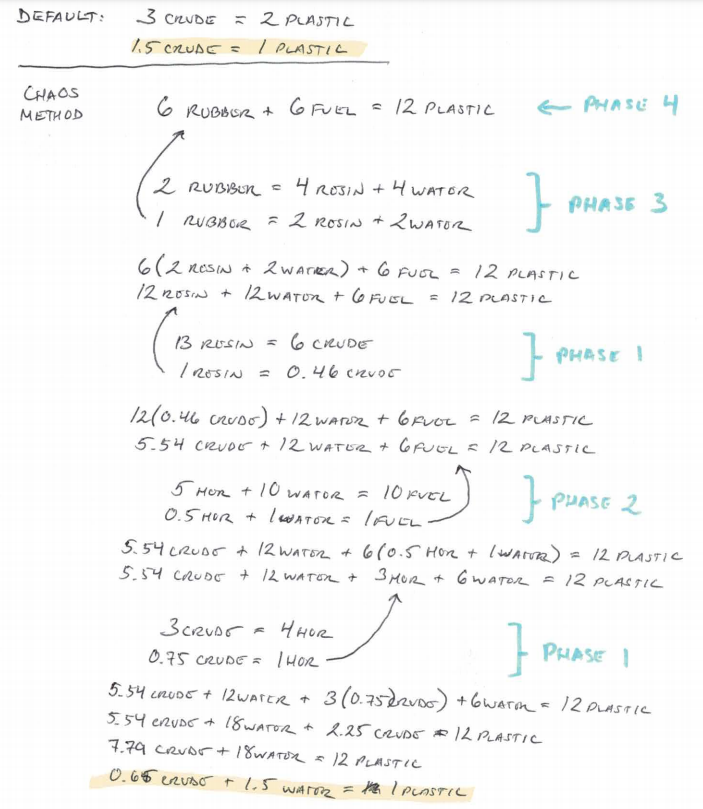 DEFAULT: 3 CRUDE = 2 PLASTIC
1.5 CRUDE = 1 PLASTIC
CHAOS METHOD
6 RUBBER + 6 FUEL = 12 PLASTIC ← PHASE 4
2 RUBBER = 4 RESIN + 4 WATER
1 RUBBER = 2 RESIN + 2 WATER
PHASE 3
6(2 RESIN + 2 WATER) + 6 FUEL = 12 PLASTIC
12 RESIN + 12 WATER + 6 FUEL = 12 PLASTIC
13 RESIN = 6 CRUDE
1 RESIN = 0.46 CRUDE
PHASE 1
12(0.46 CRUDE) + 12 WATER + 6 FUEL = 12 PLASTIC
5.54 CRUDE + 12 WATER + 6 FUEL = 12 PLASTIC
5 HOR + 10 WATER = 10 FUEL
0.5 HOR + 1 WATER = 1 FUEL
PHASE 2
5.54 CRUDE + 12 WATER + 6(0.5 HOR + 1 WATER) = 12 PLASTIC
5.54 CRUDE + 12 WATER + 3 HOR + 6 WATER = 12 PLASTIC
3 CRUDE = 4 HOR
0.75 CRUDE = 1 HOR
PHASE 1
5.54 CRUDE + 12 WATER + 3(0.75 CRUDE) + 6 WATER = 12 PLASTIC
5.54 CRUDE + 18 WATER + 2.25 CRUDE = 12 PLASTIC
7.79 CRUDE + 18 WATER = 12 PLASTIC
0.65 CRUDE + 1.5 WATER = 1 PLASTIC